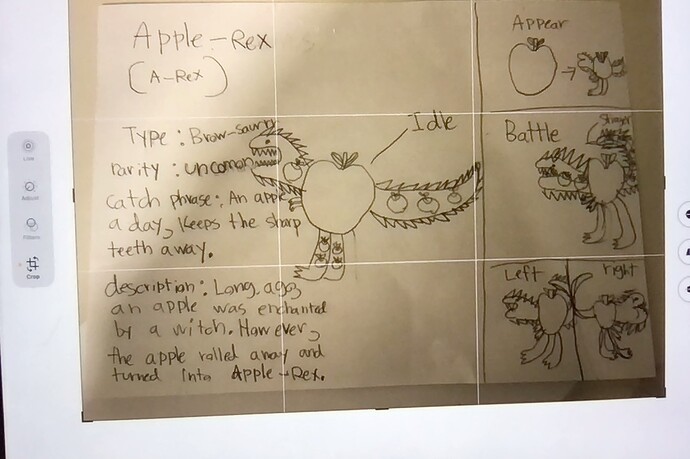 Apple-Rex
(A-Rex)
Type: Brow-saurry
rarity: uncomon
catch phrase: An apple
a day, keeps the sharp
teeth away.
description: Long ago,
an apple was enchanted
by a witch. However,
the apple rolled away and
turned into Apple-Rex.
Idle
Appear
Battle
Stinger
Left
right
Adjust
Filters
Crop